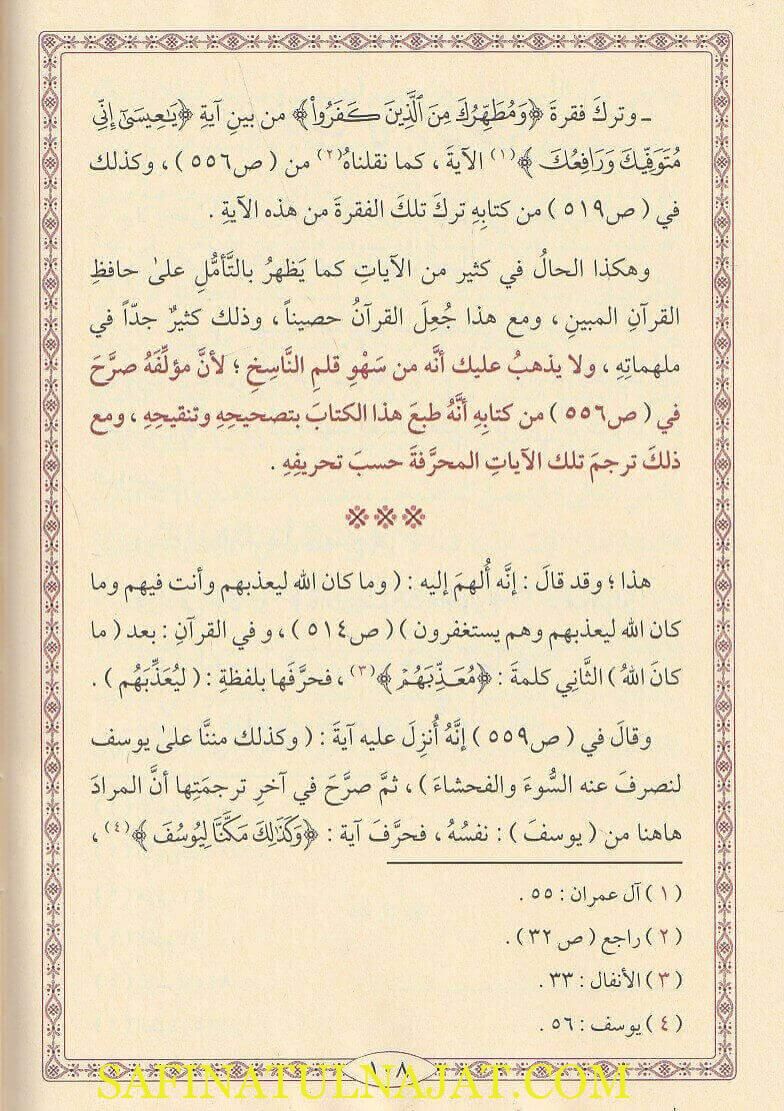 ـ وتركَ فقرةَ ﴿وَمُطَهِّرُكَ مِنَ ٱلَّذِينَ كَفَرُوا۟﴾ من بينِ آيةِ ﴿يَـٰعِيسَىٰٓ إِنِّى
مُتَوَفِّيكَ وَرَافِعُكَ﴾(١) الآيةَ ، كما نقلناهُ(٢) من ( ص٥٥٦ ) ، وكذلك
في ( ص٥١٩ ) من كتابِهِ تركَ تلكَ الفقرةَ من هذه الآيةِ .
وهكذا الحالُ في كثير من الآياتِ كما يَظهرُ بالتَّأمُّلِ علىٰ حافظِ
القرآنِ المبينِ ، ومع هذا جُعِلَ القرآنُ حصيناً ، وذلك كثيرٌ جدّاً في
ملهماتِهِ ، ولا يذهبُ عليك أنَّه من سَهْوِ قلمِ النَّاسِخِ ؛ لأنَّ مؤلِّفَهُ صرَّحَ
في ( ص٥٥٦ ) من كتابِهِ أنَّهُ طبعَ هذا الكتابَ بتصحيحِهِ وتنقيحِهِ ، ومع
ذلكَ ترجمَ تلك الآياتِ المحرَّفةَ حسبَ تحريفِهِ .
هذا ؛ وقد قالَ : إنَّه أُلهمَ إليه : ( وما كان الله ليعذبهم وأنت فيهم وما
كان الله ليعذبهم وهم يستغفرون ) ( ص٥١٤ ) ، و في القرآنِ : بعد ( ما
كانَ اللهُ ) الثَّانِي كلمةَ : ﴿مُعَذِّبَهُمْ﴾(٣) ، فحرَّفَها بلفظةِ : ( ليُعَذِّبَهُم ) .
وقالَ في ( ص٥٥٩ ) إنَّهُ أُنزِلَ عليه آيةَ : ( وكذلك مننَّا علىٰ يوسف
لنصرفَ عنه السُّوءَ والفحشاءَ ) ، ثمَّ صرَّحَ في آخرِ ترجمَتِها أنَّ المرادَ
هاهنا من ( يوسفَ ) : نفسُهُ ، فحرَّفَ آية : ﴿وَكَذَٰلِكَ مَكَّنَّا لِيُوسُفَ﴾(٤) ،
( ١ ) آل عمران : ٥٥ .
( ٢ ) راجع ( ص ٣٢ ) .
( ٣ ) الأنفال : ٣٣ .
( ٤ ) يوسف : ٥٦ .
١٠٨
SAFINATULNAJAT.COM